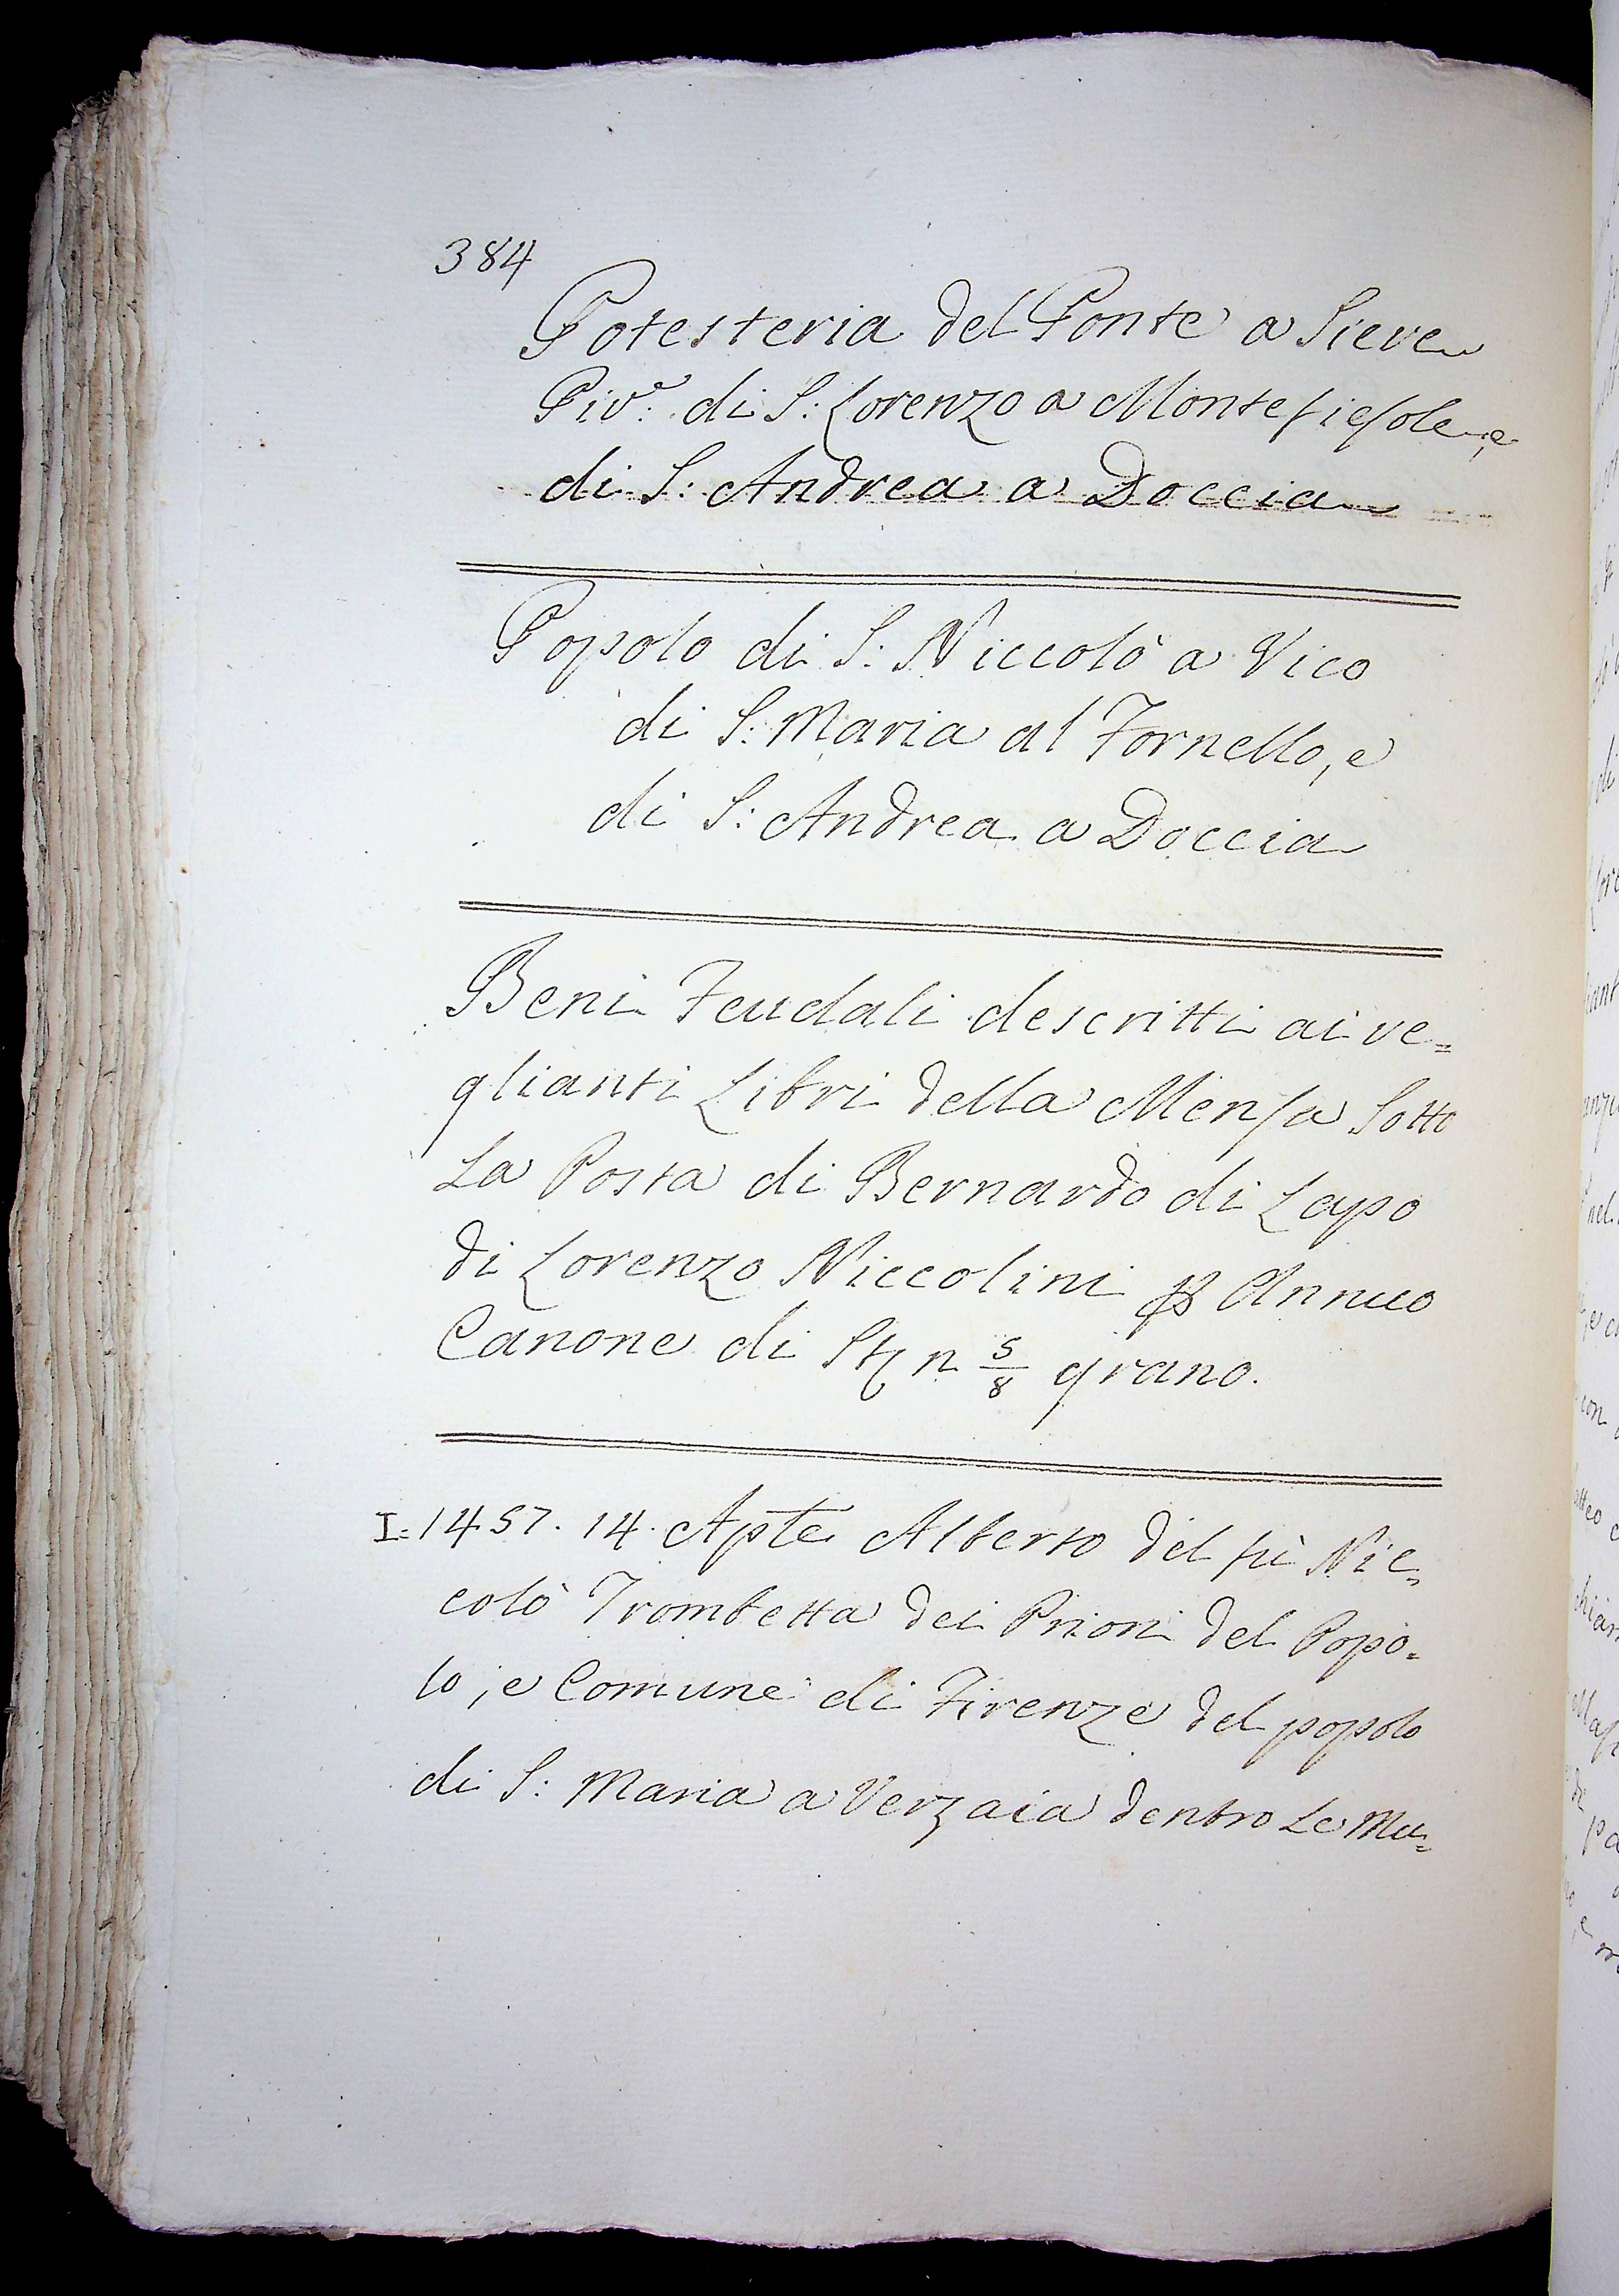 384
Potesteria del Ponte a Sieve
Piv.º di S: Lorenzo a Montefiesole, e
di S: Andrea a Doccia
Popolo di S: Niccolò a Vico
di S: Maria al Fornello, e
di S: Andrea a Doccia
Beni Feudali descritti ai ve=
glianti Libri della Mensa Sotto
La Posta di Bernardo di Lapo
di Lorenzo Niccolini p Annuo
Canone di St n 5/8 grano.
I: 1457. 14. Apte Alberto del fù Nic=
colò Trombetta dei Priori del Popo=
lo, e Comune di Firenze del popolo
di S: Maria a Verzaia dentro Le Mu=